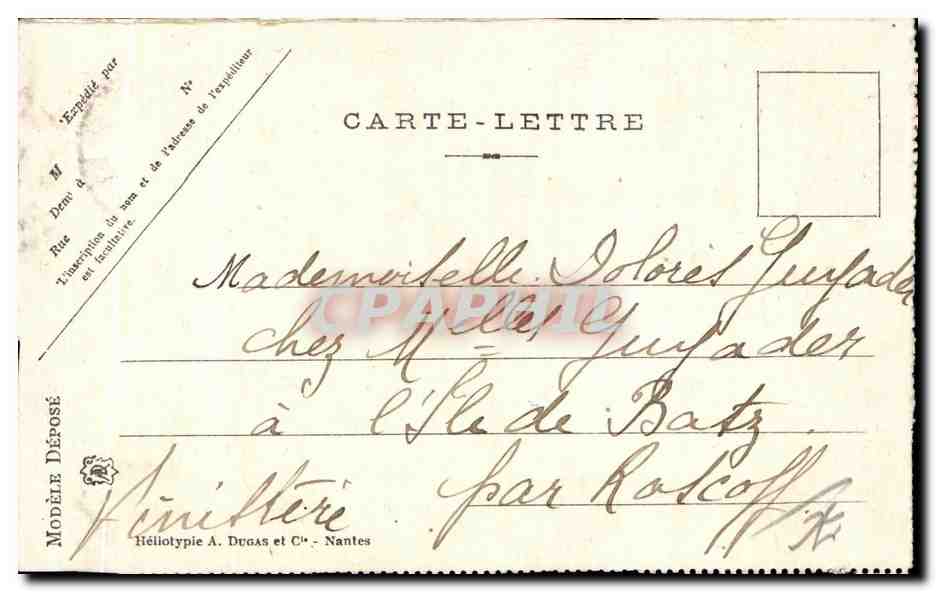 Expédié par
M
N°
Demt à
Rue
L'inscription du nom et de l'adresse de l'expéditeur
est facultative.
CARTE-LETTRE
Mademoiselle Dolorès Guyader
chez Melles Guyader
à l'Ile de Batz.
par Roscoff
Finistère
MODÈLE DÉPOSÉ
Héliotypie A. DUGAS et Cie - Nantes
CPAPHIL